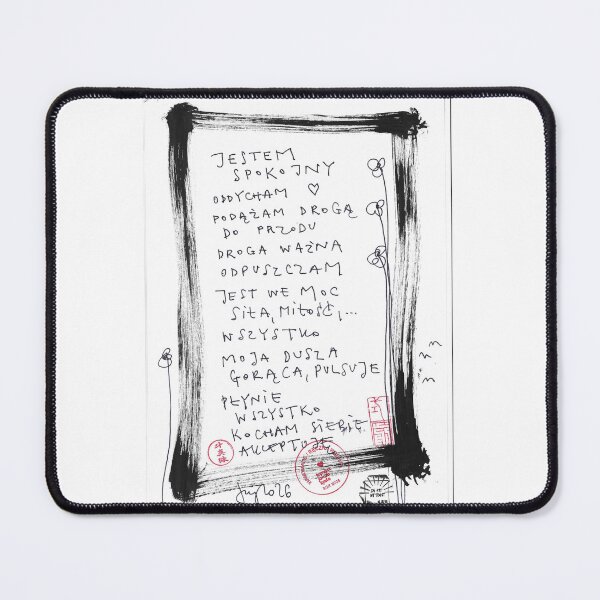 JESTEM
SPOKOJNY
ODDYCHAM ♡
PODĄŻAM DROGĄ
DO PRZODU
DROGA WAŻNA
ODPUSZCZAM
JEST WE MOC
SIŁA, MIŁOŚĆ,...
WSZYSTKO
MOJA DUSZA
GORĄCA, PULSUJE
PŁYNIE
WSZYSTKO
KOCHAM SIEBIE
AKCEPTUJĘ